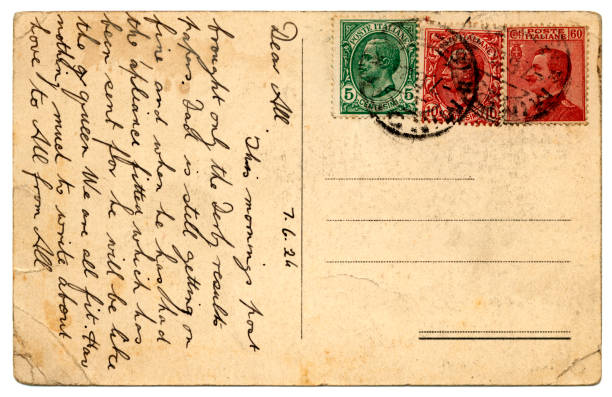 7.6.26
Dear All
This mornings post
brought only the Derby results
papers. Dad is still getting on
fine and when he has had
the apliance fitted which has
been sent for he will be like
the Q Queen We are all fit. Hav
nothing much to write about
love to All from All
POSTE ITALIANE
5 CENTESIMI 5
POSTE ITALIANE
10 CENTESIMI 10
POSTE ITALIANE
CENT 60